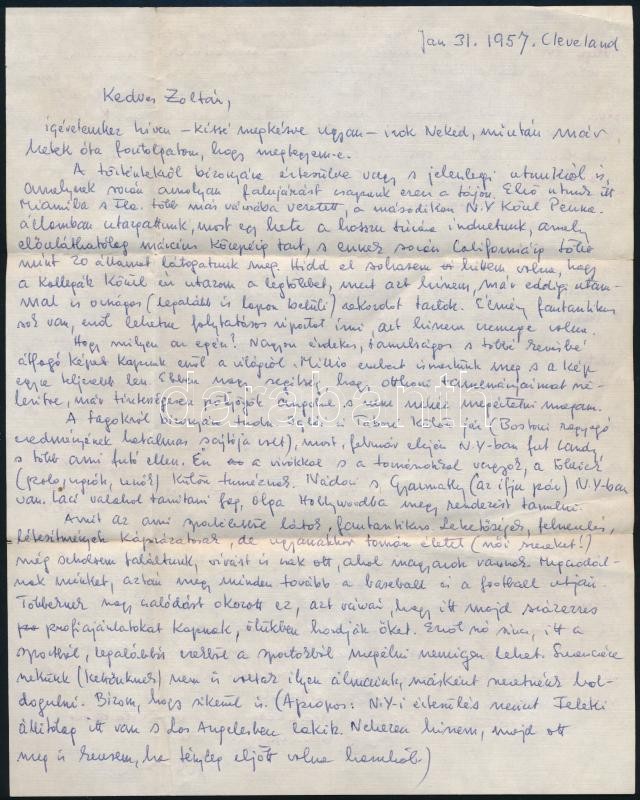 Jan 31. 1957. Cleveland
Kedves Zoltán,
igéretemhez híven – kissé megkésve ugyan – irok Neked, miután már
hetek óta fontolgatom, hogy megtegyem-e.
A történtekről bizonyára értesülve vagy s jelenlegi utunkról is,
amelynek során amolyan falujárást csapunk ezen a tájon. Első utunk itt
Miamiba s Fla. több más városába vezetett, a másodikon N.Y körül Penna.
államban utazgattunk, most egy hete a hosszu túrára indultunk, amely
előreláthatólag március közepéig tart, s ennek során Californiáig több
mint 20 államot látogatunk meg. Hidd el sohasem hittem volna, hogy
a kollegák közül én utazom a legtöbbet, mert azt hiszem, már eddigi utam-
mal is országos (legalább is lapon belüli) rekordot tartok. Élmény fantasztikus
sok van, erről lehetne folytatásos riportot írni, azt hiszem csemege volna.
Hogy milyen az egész? Nagyon érdekes, tanulságos s többé kevésbé
átfogó képet kapunk erről a világról. Millió embert ismertünk meg s a kép
egyre teljesebb lesz. Ebben nagy segítség, hogy otthoni tanulmányaimat
már tűrhetően angolul s nem nehéz megértetni magam.
A tagokról bizonyára tudsz. és Tábori Kaliforniá (Bostoni nagyagyó
eredményének hatalmas sajtója volt), most, február elején N.Y-ban fut Landy
s több ami futó ellen. Én a vívókkal s a tornászokkal vagyok, a többiek
(polo, ugrók, uszók) külön turnéznak. Nádori s Gyarmathy (az ifju pár) N.Y-ban
van. Laci valahol tanítani fog, Olga Hollywoodba megy rendezést tanulni.
Amit az ami sportéletből látok, fantasztikus lehetőségek, felszerelés,
létesítmények kápráztatóak, de ugyanakkor tornász életet (női szereket!)
még sehol sem találtunk, vívást is csak ott, ahol magyarok vannak. Megcsodál-
nak minket, aztán megy minden tovább a baseball és a football utján.
Többeknek nagy csalódást okozott ez, azt várva, hogy itt majd százezres
profiajánlatokat kapnak, ölükben hordják őket. Erről szó sincs, itt a
sportból, legalábbis ezekből a sportokból megélni nemigen lehet. Szerencsére
nekünk (kettőnknek) nem is voltak ilyen álmaink, másként szeretnénk bol-
dogulni. Bízom, hogy sikerül is. (Apropos: N.Y-i értesülés szerint Teleki
állítólag itt van s Los Angelesben lakik. Nehezen hiszem, majd ott
meg is keresem, ha tényleg eljött volna hazulról.)
darabanth.hu